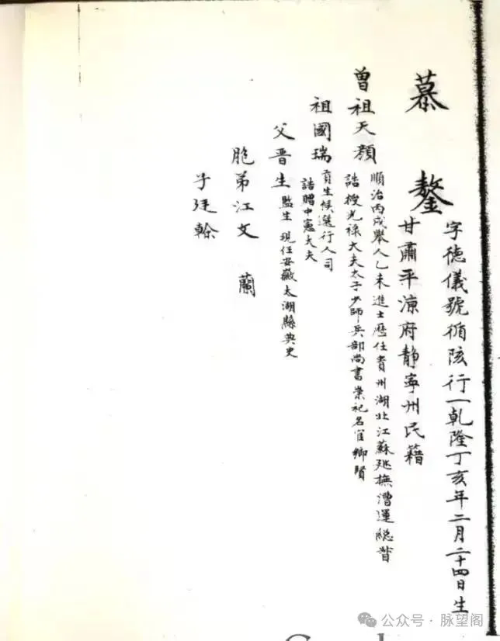 慕鏊
字德儀號循陔行一乾隆丁亥年二月二十四日生
甘肅平涼府靜寧州民籍
曾祖天顏
順治丙戌舉人乙未進士歷任貴州湖北江蘇廵撫漕運總督
誥授光祿大夫太子少師兵部尚書崇祀名宦鄉賢
祖國瑞
貢生候選行人司
誥贈中憲大夫
父晋生
監生現任安徽太湖縣典史
胞弟江文 蘭
子廷榦
公众号·脉望阁